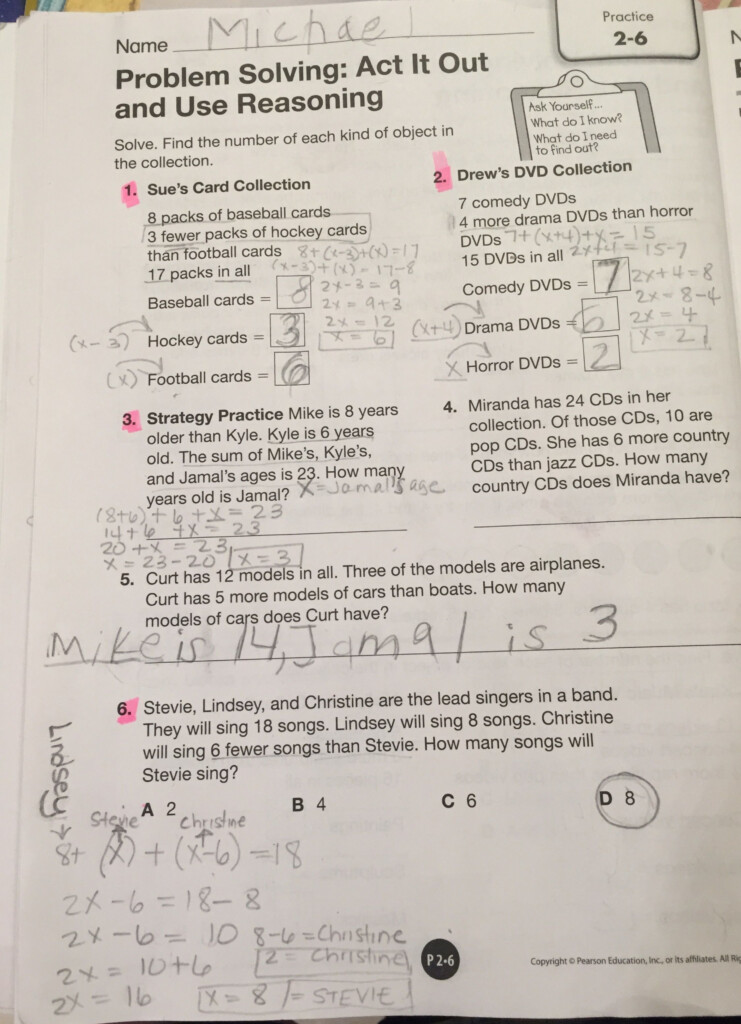 Practice
2-6
Name Michael
Problem Solving: Act It Out
and Use Reasoning
Ask Yourself...
What do I know?
What do I need
to find out?
Solve. Find the number of each kind of object in
the collection.
1. Sue's Card Collection
8 packs of baseball cards
3 fewer packs of hockey cards
than football cards 8+(x-3)+(x)=17
(x-3)+(x) = 17-8
17 packs in all
2x-3 = 9
Baseball cards = 8
2x = 9+3
2x = 12
(x-3) Hockey cards = 3
x = 6
(x) Football cards = 6
2. Drew's DVD Collection
7 comedy DVDs
4 more drama DVDs than horror
DVDs 7+(x+4)+x = 15
15 DVDs in all 2x+4 = 15-7
Comedy DVDs = 7 2x+4=8
2x = 8-4
(x+4) Drama DVDs = 6 2x = 4
x = 2
X Horror DVDs = 2
3. Strategy Practice Mike is 8 years
older than Kyle. Kyle is 6 years
old. The sum of Mike's, Kyle's,
and Jamal's ages is 23. How many
years old is Jamal? X=Jamal's age
(8+6)+6+x = 23
14+6+x = 23
20+x = 23
x = 23-20 x = 3
4. Miranda has 24 CDs in her
collection. Of those CDs, 10 are
pop CDs. She has 6 more country
CDs than jazz CDs. How many
country CDs does Miranda have?
5. Curt has 12 models in all. Three of the models are airplanes.
Curt has 5 more models of cars than boats. How many
models of cars does Curt have?
Mike is 14, Jamal is 3
6. Stevie, Lindsey, and Christine are the lead singers in a band.
They will sing 18 songs. Lindsey will sing 8 songs. Christine
will sing 6 fewer songs than Stevie. How many songs will
Stevie sing?
A 2 B 4 C 6 D 8
Lindsey
Stevie Christine
8+ (x) + (x-6) = 18
2x-6 = 18-8
2x-6 = 10 8-6=Christine
2x = 10+6 2 = Christine
2x = 16 x = 8 = STEVIE
P 2•6
Copyright © Pearson Education, Inc., or its affiliates. All